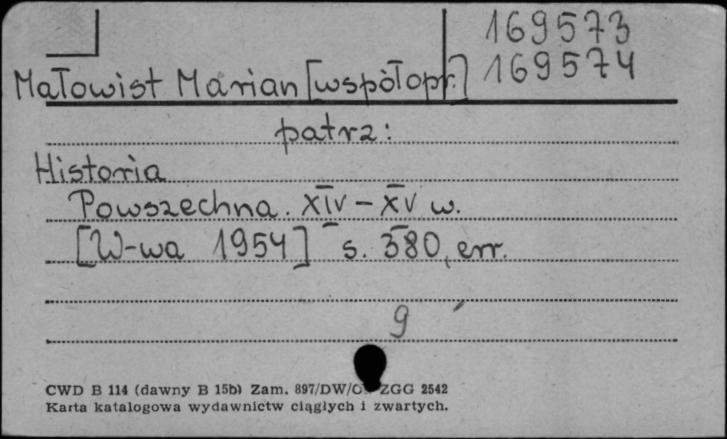 169573
169574
Małowist Marian [współopr.]
patrz:
Historia
Powszechna. XIV – XV w.
[W-wa 1954] s. 380, err.
9
CWD B 114 (dawny B 15b) Zam. 897/DW/ ZGG 2542
Karta katalogowa wydawnictw ciągłych i zwartych.